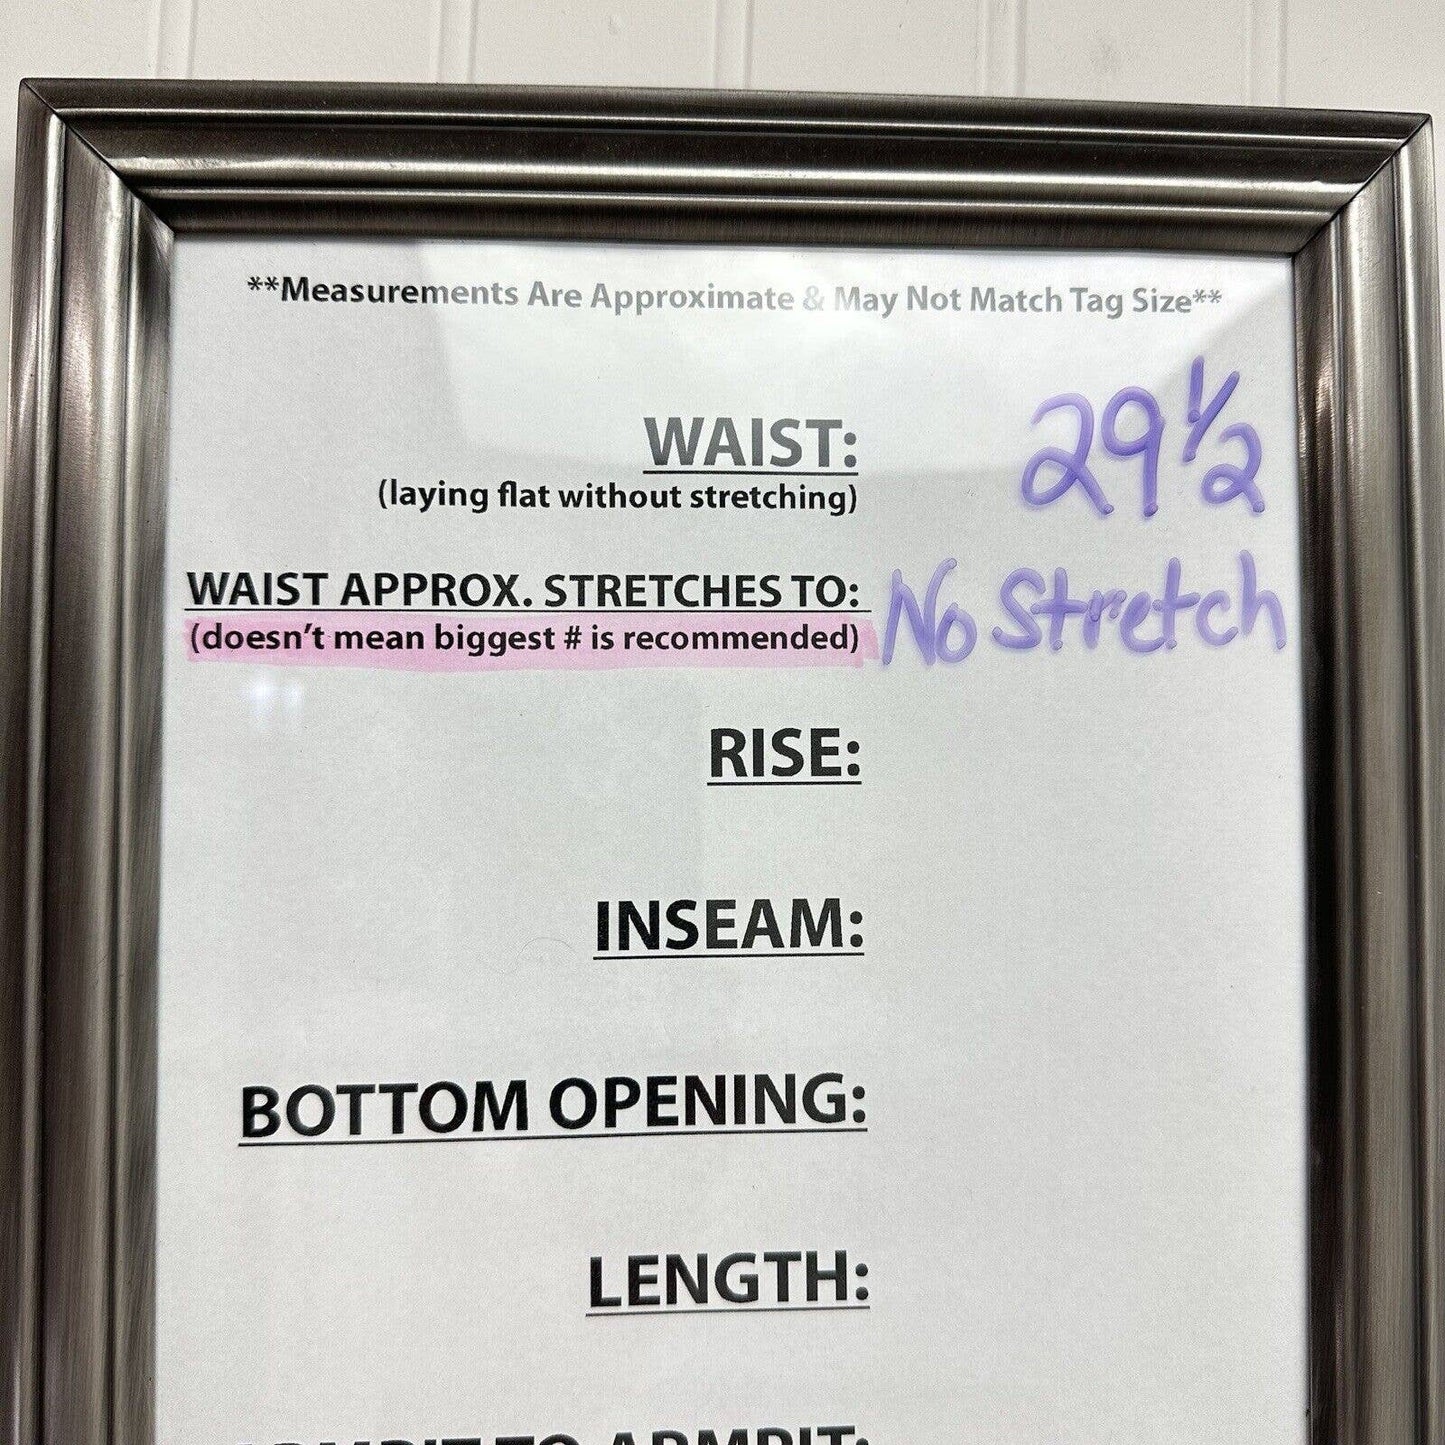 **Measurements Are Approximate & May Not Match Tag Size**
WAIST: 29 1/2
(laying flat without stretching)
WAIST APPROX. STRETCHES TO: No Stretch
(doesn't mean biggest # is recommended)
RISE:
INSEAM:
BOTTOM OPENING:
LENGTH:
ARMPIT TO ARMPIT: